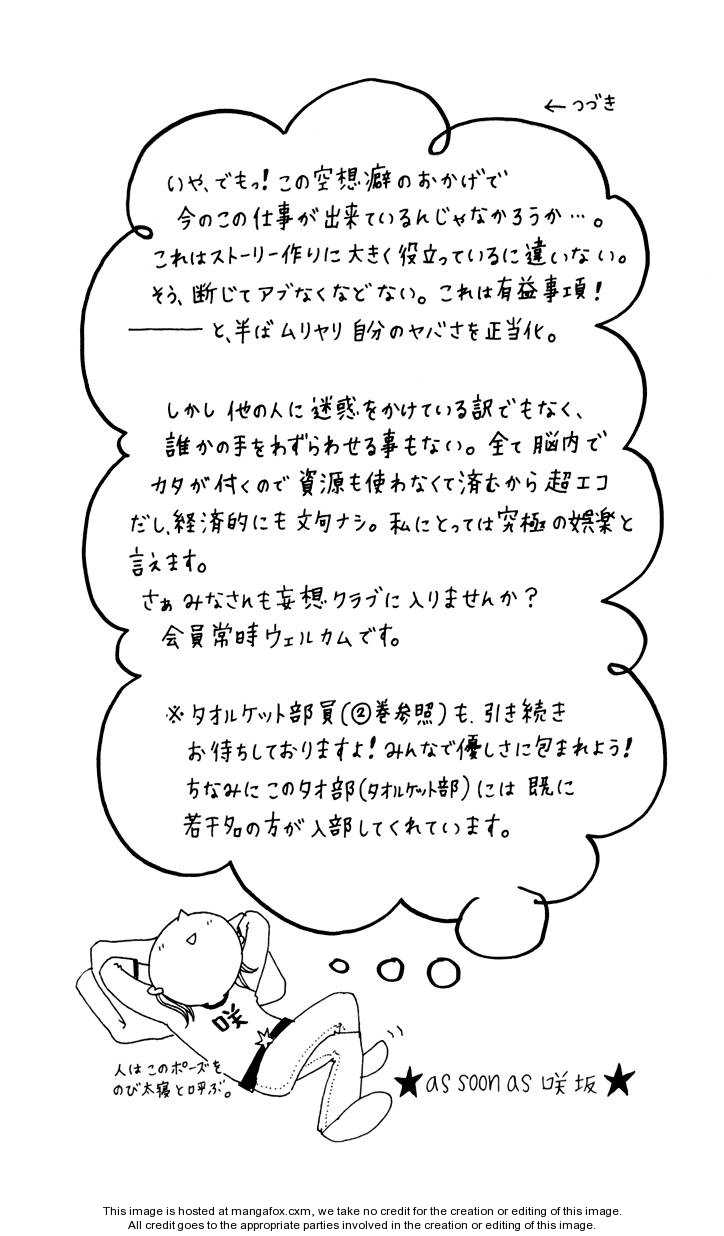 ←つづき
いや、でもっ!この空想癖のおかげで
今のこの仕事が出来ているんじゃなかろうか…。
これはストーリー作りに大きく役立っているに違いない。
そう、断じてアブなくなどない。これは有益事項!
――と、半ばムリヤリ自分のヤバさを正当化。
しかし他の人に迷惑をかけている訳でもなく、
誰かの手をわずらわせる事もない。全て脳内で
カタが付くので資源も使わなくて済むから超エコ
だし、経済的にも文句ナシ。私にとっては究極の娯楽と
言えます。
さぁみなさんも妄想クラブに入りませんか?
会員常時ウェルカムです。
※タオルケット部員(②巻参照)も、引き続き
お待ちしておりますよ!みんなで優しさに包まれよう!
ちなみにこのタオ部(タオルケット部)には既に
若干名の方が入部してくれています。
咲
人はこのポーズを
のび太寝と呼ぶ。
★as soon as 咲坂★
This image is hosted at mangafox.cxm, we take no credit for the creation or editing of this image.
All credit goes to the appropriate parties involved in the creation or editing of this image.